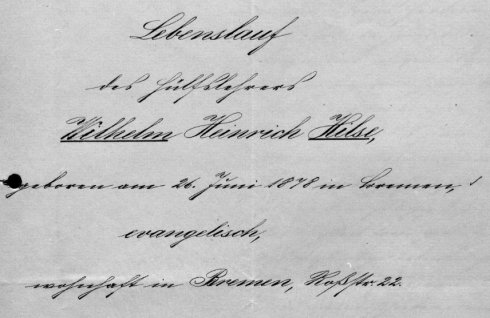 Lebenslauf
des Hülfslehrers
Wilhelm Heinrich Hilse,
geboren am 26. Juni 1878 in Bremen,
evangelisch,
wohnhaft in Bremen, Roßstr. 22.